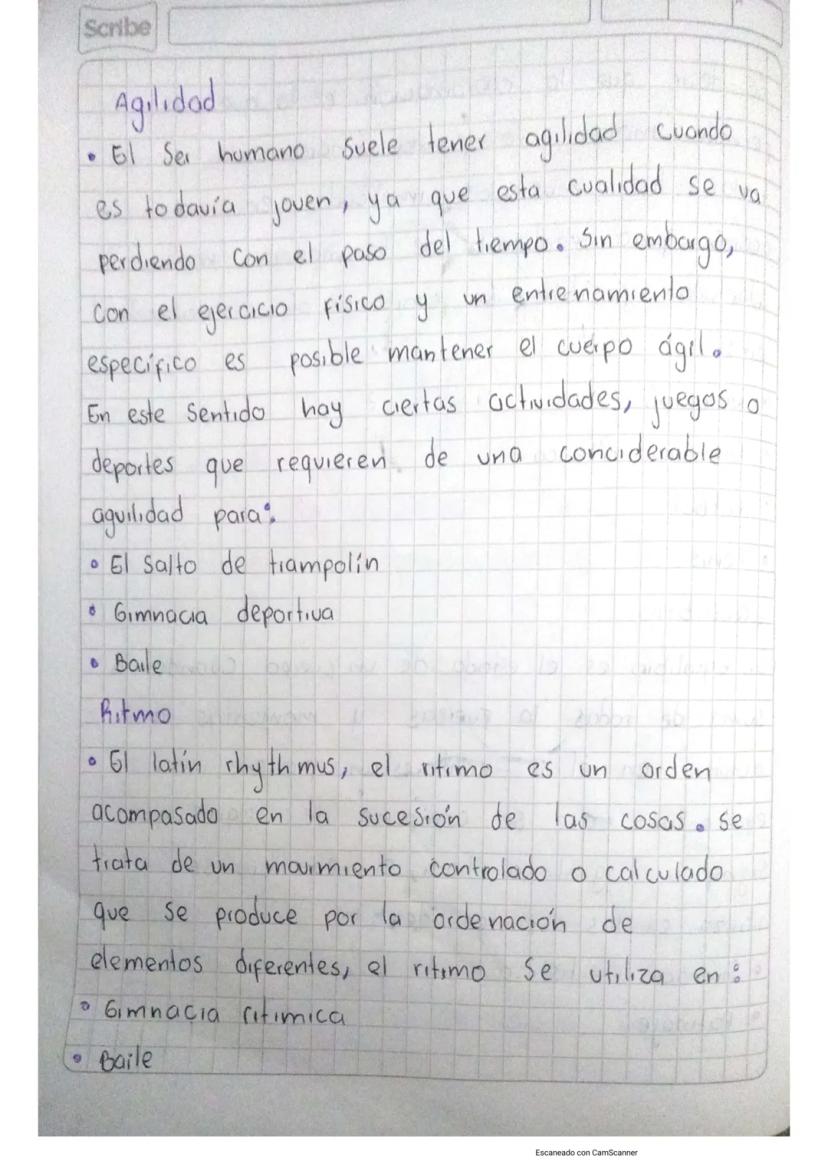 Scribe
Agilidad
• El Ser humano suele tener agilidad cuando
es todavía joven, ya que esta cualidad se va
perdiendo con el paso del tiempo. Sin embargo,
con el ejercicio físico y un entrenamiento
específico es posible mantener el cuerpo ágil.
En este sentido hay ciertas actividades, juegos o
deportes que requieren de una conciderable
aguilidad para:
• El salto de trampolín
• Gimnacia deportiva
• Baile
Ritmo
• El latín rhythmus, el ritimo es un orden
acompasado en la sucesión de las cosas. se
trata de un movimiento controlado o calculado
que se produce por la ordenación de
elementos diferentes, el ritimo se utiliza en:
• Gimnacia ritimica
• Baile
Escaneado con CamScanner